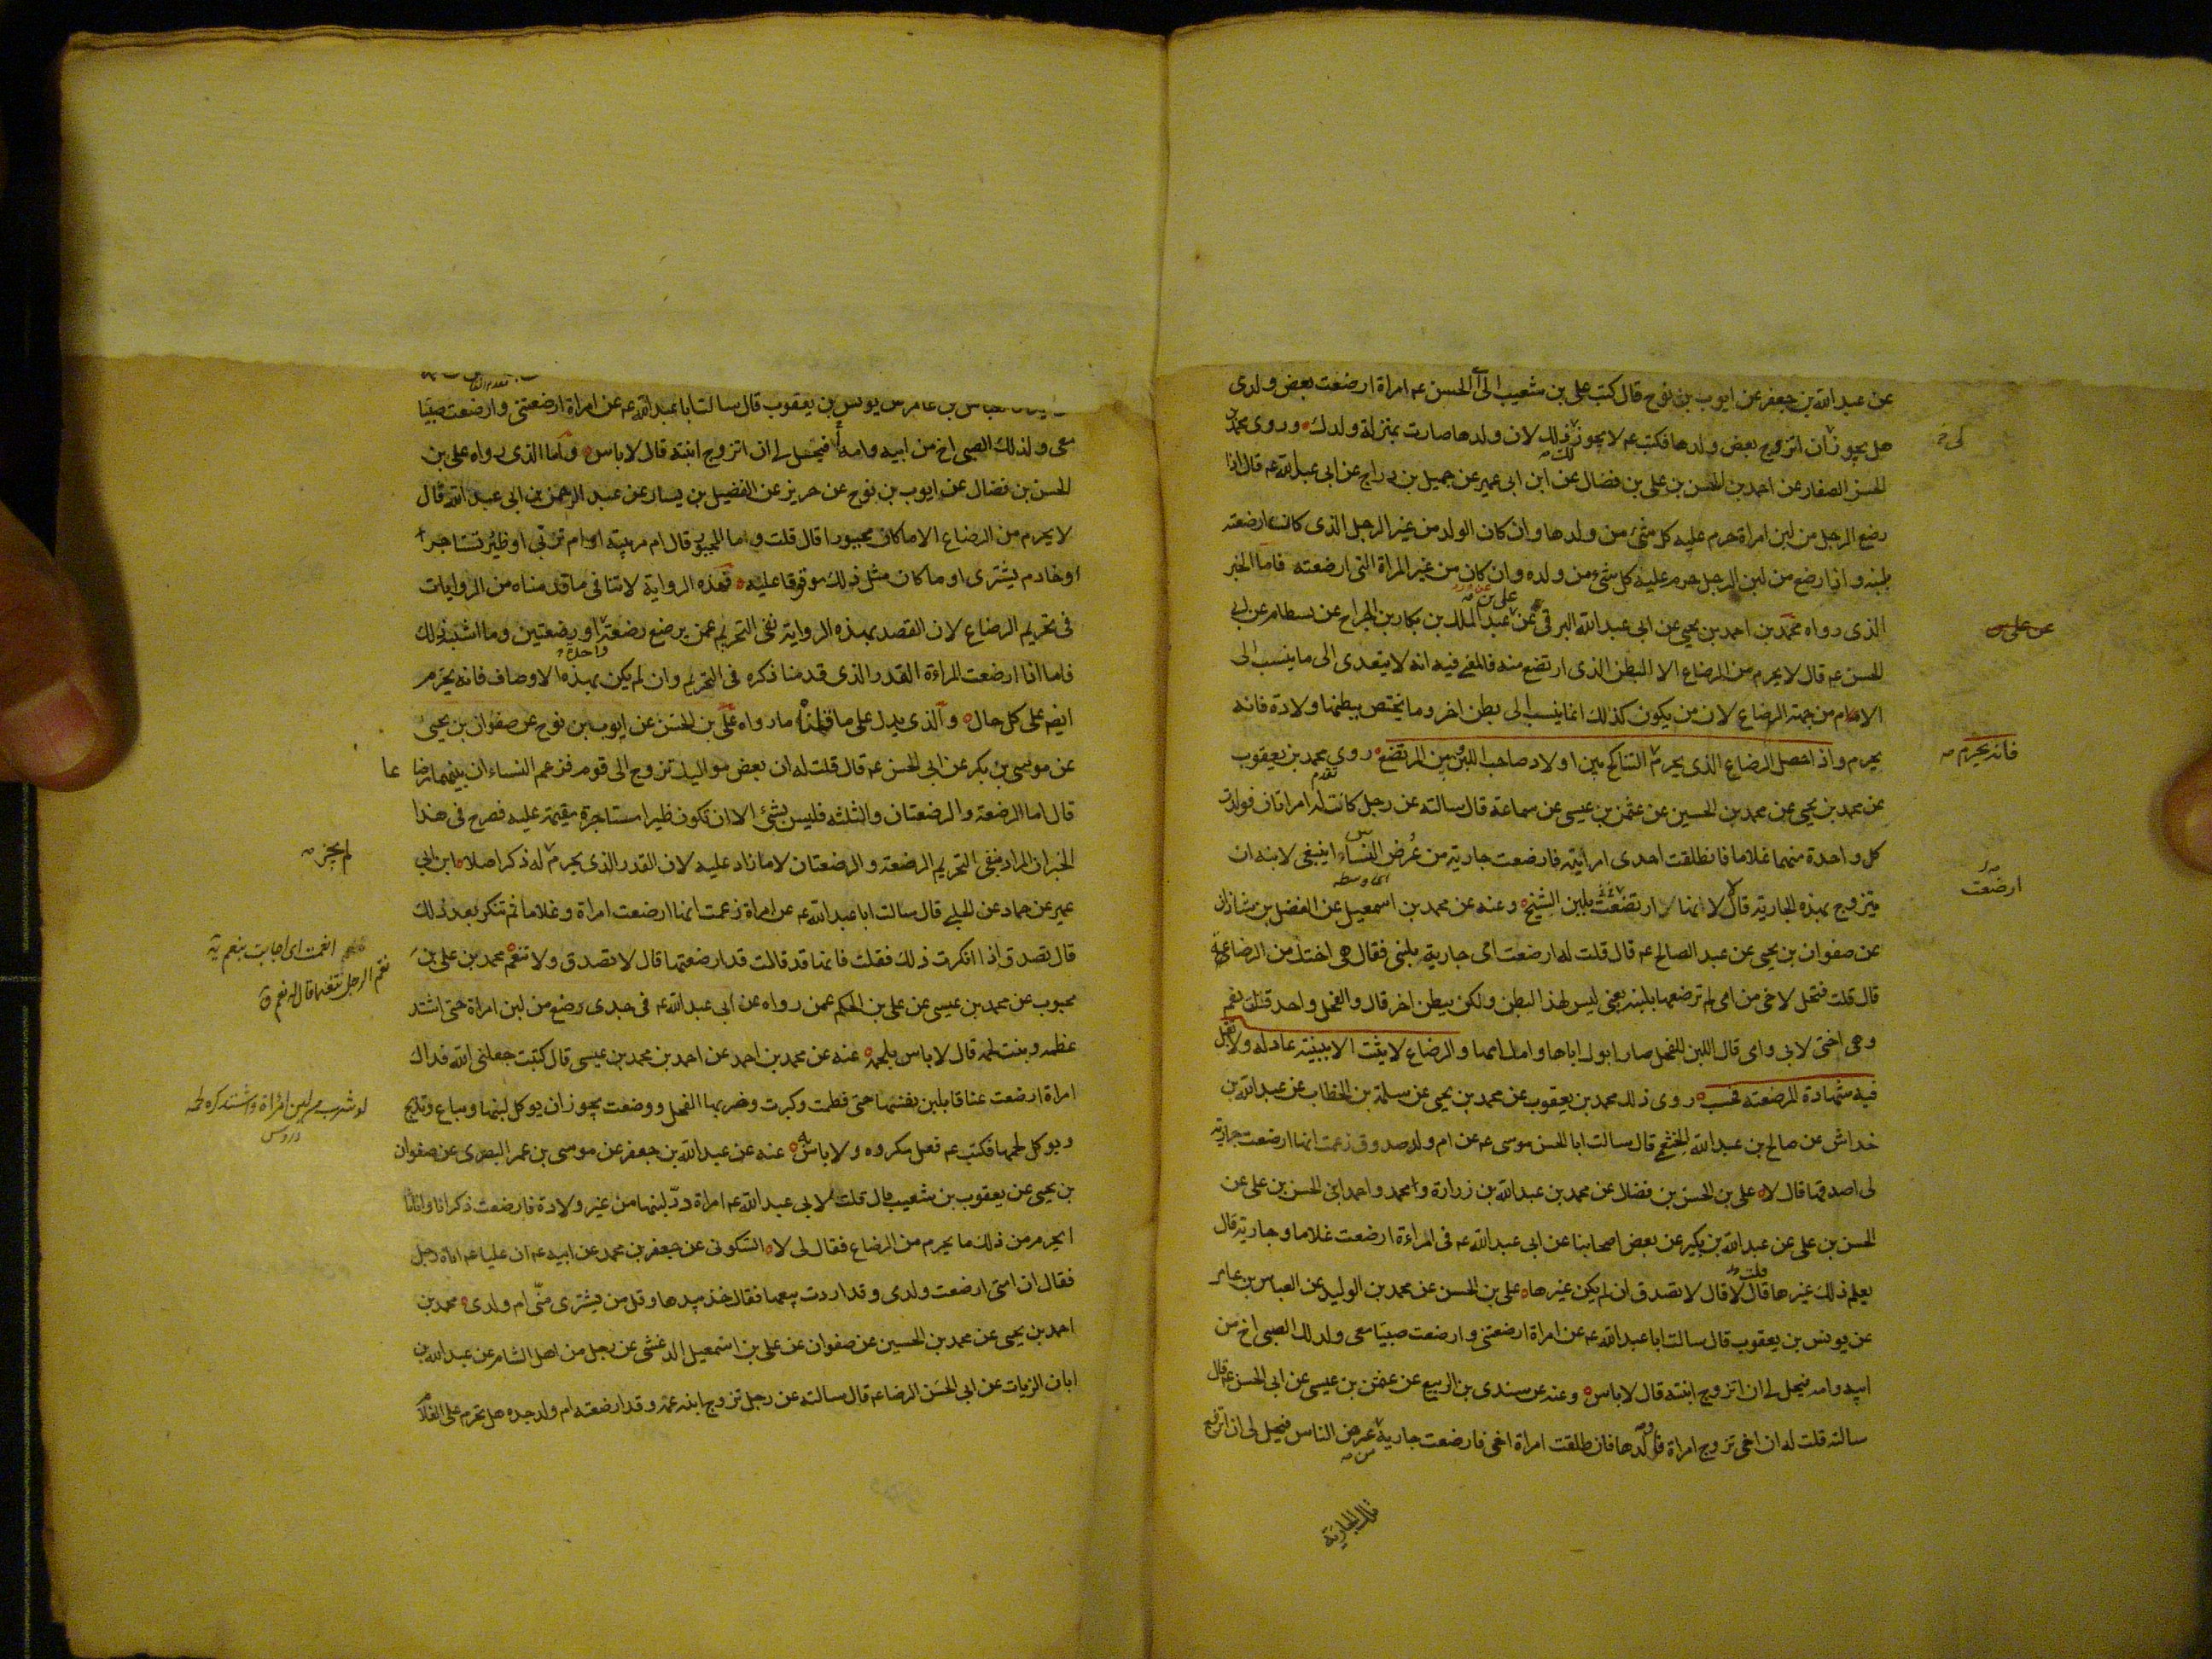 عن عبد الله بن جعفر عن ايوب بن نوح قال كتب على بن شعيب الى ابى الحسن عه امراة ارضعت بعض ولدى
هل يجوز ان اتزوج بعض ولدها فكتب عه لا يجوز ذلك لان ولدها صارت بمنزلة ولدك وروى محمد بن
الحسن الصفار عن احمد بن الحسن بن على بن فضال عن ابن ابى عمير عن جميل بن دراج عن ابى عبد الله عه قال اذا
رضع الرجل من لبن امراة حرم عليه كل شئ من ولدها وان كان الولد من غير الرجل الذى كانت ارضعته
بلبنه واذا رضع من لبن الرجل حرم عليه كل شئ من ولده وان كان من غير المراة التى ارضعته فاما الخبر
الذى رواه محمد بن احمد بن يحيى عن ابى عبد الله البرقى عن على بن عبد الملك بن بكار بن الجراح عن بسطام عن ابى
الحسن عه قال لا يحرم من الرضاع الا البطن الذى ارتضع منه فالمعنى فيه انه لا يتعدى الى ما ينسب الى
الام من جهة الرضاع لان من يكون كذلك انما ينسب الى بطن اخر وما يختص ببطنها ولادة فانه
يحرم واذا حصل الرضاع الذى يحرم التناكح بين اولاد صاحب اللبن وبين المرتضع روى محمد بن يعقوب
عن محمد بن يحيى عن محمد بن الحسين عن عثمن بن عيسى عن سماعة قال سالته عن رجل كانت له امراتان فولدت
كل واحدة منهما غلاما فانطلقت احدى امراتيه فارضعت جارية من عرض النساء اينبغى لابنه ان
يتزوج بهذه الجارية قال لا لانها ارتضعت بلبن الشيخ وعنه عن محمد بن اسمعيل عن الفضل بن شاذان
عن صفوان بن يحيى عن عبد الصالح عه قال قلت له ارضعت امى جارية بلبنى فقال هى اختك من الرضاعة
قال قلت فتحل لاخى من امى لم ترضعها بلبنه يعنى ليس لهذا البطن ولكن ببطن اخر قال والفحل واحد قلت نعم
وهى اختى لابى وامى قال اللبن للفحل صار ابوك اباها وامك امها والرضاع لا يثبت الا ببينة عادله ولا يقبل
فيه شهادة المرضعة فحسب روى ذلك محمد بن يعقوب عن محمد بن يحيى عن سلمة بن الخطاب عن عبد الله بن
خداش عن صالح بن عبد الله الخثعمى قال سالت ابا الحسن موسى عه عن ام ولد صدوق زعمت انها ارضعت جارية
لى اصدقها قال لا على بن الحسن بن فضال عن محمد بن عبد الله بن زرارة ومحمد واحمد ابنى الحسن بن على عن
الحسن بن على عن عبد الله بن بكير عن بعض اصحابنا عن ابى عبد الله عه فى امراءة ارضعت غلاما وجارية قال
يعلم ذلك غيرها قال قلت لا قال لا تصدق ان لم يكن غيرها على بن الحسن عن محمد بن الوليد عن العباس بن عامر
عن يونس بن يعقوب قال سالت ابا عبد الله عه عن امراة ارضعتنى وارضعت صبيا معى ولذلك الصبى اخ من
ابيه وامه فيحل لى ان اتزوج ابنته قال لا باس وعنه عن سندى بن الربيع عن عثمن بن عيسى عن ابى الحسن عه قال
سالته قلت له ان اخى تزوج امراة فاولدها فانطلقت امراة اخى فارضعت جارية من عرض الناس فيحل لى ان اتزوج
تلك الجارية
عن على
فانه يحرم صه
ارضعت
العباس بن عامر عن يونس بن يعقوب قال سالت ابا عبد الله عه عن امراة ارضعتنى وارضعت صبيا
معى ولذلك الصبى اخ من ابيه وامه فيحل لى ان اتزوج ابنته قال لا باس واما الذى رواه على بن
الحسن بن فضال عن ايوب بن نوح عن حريز عن الفضيل بن يسار عن عبد الرحمن عن ابى عبد الله قال
لا يحرم من الرضاع الا ما كان مجبورا قال قلت وما المجبور قال ام مربية او ام تربى او ظئر تستاجر
او خادم يشترى او ما كان مثل ذلك موقوفا عليه فهذه الرواية لا تنافى ما قدمناه من الروايات
فى تحريم الرضاع لان القصد بهذه الرواية نفى التحريم عمن يرضع رضعة واحدة او رضعتين وما اشبه ذلك
فاما اذا ارضعت المراءة القدر الذى قدمنا ذكره فى التحريم وان لم يكن بهذه الاوصاف فانه يحرم
ايضم على كل حال والذى يدل على ما قلناه ما رواه على بن الحسن عن ايوب بن نوح عن صفوان بن يحيى
عن موسى بن بكر عن ابى الحسن عه قال قلت له ان بعض مواليك تزوج الى قوم فزعم النساء ان بينهما رضاعا
قال اما الرضعة والرضعتان والثلثه فليس بشئ الا ان تكون ظيرا مستاجرة مقيمة عليه فصرح فى هذا
الخبر ان المراد بنفى التحريم الرضعة والرضعتان لا ما زاد عليه لان القدر الذى يحرم لم يجز له ذكر اصلا ابن ابى
عمير عن حماد عن الحلبى قال سالت ابا عبد الله عه عن امراة زعمت انها ارضعت امراة وغلاما ثم تنكر بعد ذلك
قال تصدق اذا انكرت ذلك فقلت فانها قد قالت قد ارضعتها قال لا تصدق ولا تنعم محمد بن على بن
محبوب عن محمد بن عيسى عن على بن الحكم عمن رواه عن ابى عبد الله عه فى جدى رضع من لبن امراة حتى اشتد
عظمه ونبت لحمه قال لا باس بلحمه عنه عن محمد بن احمد عن احمد بن محمد بن عيسى قال كتبت جعلنى الله فداك
امراة ارضعت عناقا بلبن نفسها حتى فطمت وكبرت وضربها الفحل ووضعت يجوز ان يوكل لبنها ويباع وتذبح
ويوكل لحمها فكتب عه فعل مكروه ولا باس به عنه عن عبد الله بن جعفر عن موسى بن عمر البصرى عن صفوان
بن يحيى عن يعقوب بن شعيب قال قلت لابى عبد الله عه امراة درّ لبنها من غير ولادة فارضعت ذكرانا واناثا
ايحرم من ذلك ما يحرم من الرضاع فقال لى لا السكونى عن جعفر بن محمد عن ابيه عه ان عليا عه اتاه رجل
فقال ان امتى ارضعت ولدى وقد اردت بيعها فقال خذ بيدها وقل من يشترى منّى ام ولدى محمد بن
احمد بن يحيى عن محمد بن الحسين عن صفوان عن على بن اسمعيل الدغشى عن رجل من اهل الشام عن عبد الله بن
ابان الزيات عن ابى الحسن الرضا عه قال سالته عن رجل تزوج ابنة عمه وقد ارضعته ام ولد جده هل تحرم على الغلام
لم يجز صه
انعمت اى اجابت بنعم يه
نعّم الرجل تنعيما قال له نعم ق
لو شرب من لبن امراة واشتد كره لحمه
دروس